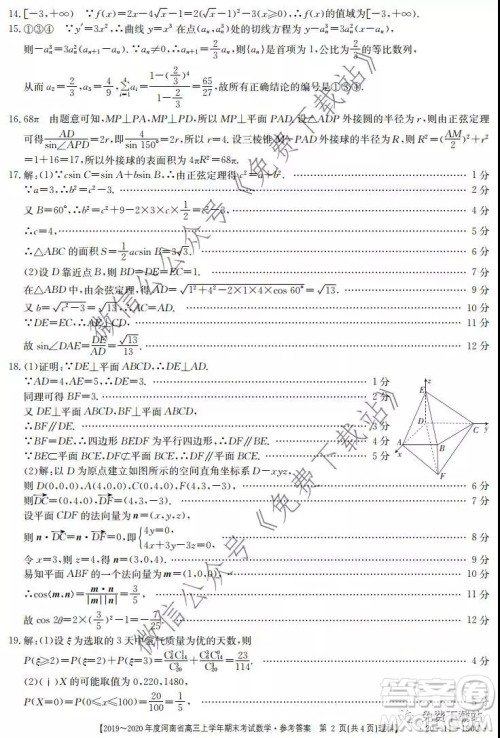 14.[−3,+∞) ∵f(x)=2x−4√x−1=2(√x−1)²−3(x≥0),∴f(x)的值域为[−3,+∞).
15.①③④ ∵y′=3x²,∴曲线 y=x³ 在点(aₙ,aₙ³)处的切线方程为 y−aₙ³=3aₙ²(x−aₙ),
则−aₙ³=3aₙ²(aₙ₊₁−aₙ).∵aₙ≠0,∴aₙ₊₁=2/3aₙ,则{aₙ}是首项为1,公比为2/3的等比数列,
从而 a₂=2/3,a₃=4/9,=65/27,故所有正确结论的编号是①③④.
16.68π 由题意可知,MP⊥PA,MP⊥PD,所以MP⊥平面PAD.设△ADP外接圆的半径为r,则由正弦定理
可得AD/sin∠APD=2r,即4/sin150°=2r,所以r=4.设三棱锥M−PAD外接球的半径为R,则R²=(/2)²+r²
=1+16=17,所以外接球的表面积为4πR²=68π.
17.解:(1)∵csin C=asin A+bsin B,∴由正弦定理得c²=a²+b². 1分
∵a=3,∴b²=c²−3. 2分
又B=60°,∴b²=c²+9−2×3×c×1/2 3分
∴c=4. 4分
∴△ABC的面积S=1/2acsin B=3√3. 6分
(2)设D靠近点B,则BD=DE=EC=1. 7分
在△ABD中,由余弦定理,得AD=√(1²+4²−2×1×4×cos 60°)=√13. 9分
又b=√(c²−3)=√13,∴AC=AD. 10分
∵DE=EC,∴AE⊥CD, 11分
故sin∠DAE=DE/AD=√13/13. 12分
18.(1)证明:∵DE⊥平面ABCD,∴DE⊥AD.
∵AD=4,AE=5,∴DE=3. 1分
同理可得BF=3. 2分
又DE⊥平面ABCD,BF⊥平面ABCD,
∴BF∥DE. 3分
∵BF=DE,∴四边形BEDF为平行四边形,∴DF∥BE. 4分
∵BE⊂平面BCE,DF⊄平面BCE,∴DF∥平面BCE. 5分
(2)解:以D为原点建立如图所示的空间直角坐标系D−xyz,
则D(0,0,0),A(4,0,0),C(0,4,0),F(4,3,−3), 6分
则DC=(0,4,0),DF=(4,3,−3). 7分
设平面CDF的法向量为n=(x,y,z),
则n·DC=n·DF=0,即{4y=0, 4x+3y−3z=0, 8分
令x=3,则z=4,得n=(3,0,4). 9分
易知平面ABF的一个法向量为m=(1,0,0), 10分
∴cos⟨m,n⟩=m·n/|m||n|=3/5, 11分
故cos 2θ=2×(3/5)²−1=−7/25. 12分
19.解:(1)设ξ为选取的3天中空气质量为优的天数,则
P(ξ≥2)=P(ξ=2)+P(ξ=3)==23/114. 3分
(2)(ⅰ)X的可能取值为0,220,1480, 4分
P(X=0)=P(0≤x≤100)=20/100=1/5, 5分
【2019~2020年度河南省高三上学年期末考试数学·参考答案 第2页(共4页)
微信公众号《免费下载站》
微信公众号《免费下载站》
免费下载站
z
E
D
C
y
A
B
x
F